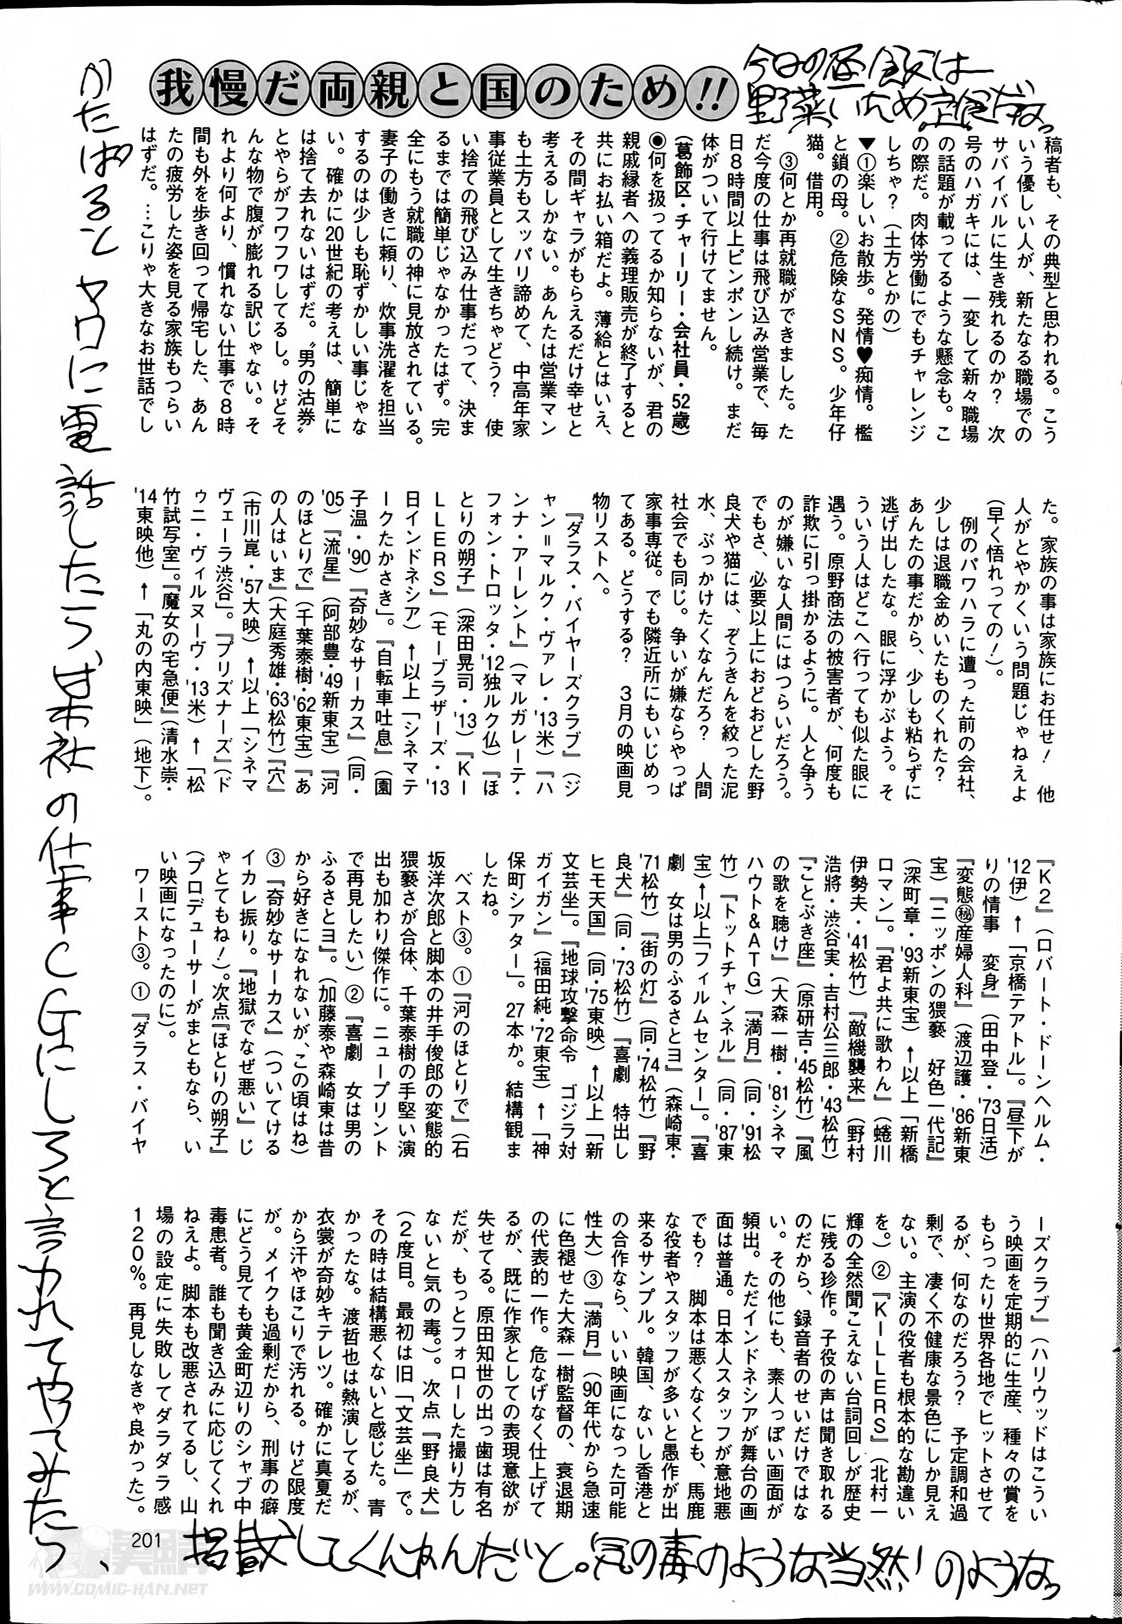 我慢だ両親と国のため!!
今日の昼飯は
野菜いため定食だなっ
稿者も、その典型と思われる。こう
いう優しい人が、新たなる職場での
サバイバルに生き残れるのか? 次
号のハガキには、一変して新々職場
の話題が載ってるような懸念も。こ
の際だ。肉体労働にでもチャレンジ
しちゃ?(土方とかの)
▼①楽しいお散歩。発情♥痴情。檻
と鎖の母。②危険なSNS。少年仔
猫。借用。
③何とか再就職ができました。た
だ今度の仕事は飛び込み営業で、毎
日8時間以上ピンポンし続け。まだ
体がついて行けてません。
(葛飾区・チャーリー・会社員・52歳)
◉何を扱ってるか知らないが、君の
親戚縁者への義理販売が終了すると
共にお払い箱だよ。薄給とはいえ、
その間ギャラがもらえるだけ幸せと
考えるしかない。あんたは営業マン
も土方もスッパリ諦めて、中高年家
事従業員として生きちゃどう? 使
い捨ての飛び込み仕事だって、決ま
るまでは簡単じゃなかったはず。完
全にもう就職の神に見放されている。
妻子の働きに頼り、炊事洗濯を担当
するのは少しも恥ずかしい事じゃな
い。確かに20世紀の考えは、簡単に
は捨て去れないはずだ。〝男の沽券〟
とやらがフワフワしてるし。けどそ
んな物で腹が膨れる訳じゃない。そ
れより何より、慣れない仕事で8時
間も外を歩き回って帰宅した、あん
たの疲労した姿を見る家族もつらい
はずだ。…こりゃ大きなお世話でし
た。家族の事は家族にお任せ! 他
人がとやかくいう問題じゃねえよ
(早く悟れっての!)。
例のパワハラに遭った前の会社、
少しは退職金めいたものくれた?
あんたの事だから、少しも粘らずに
逃げ出したな。眼に浮かぶよう。そ
ういう人はどこへ行っても似た眼に
遇う。原野商法の被害者が、何度も
詐欺に引っ掛かるように。人と争う
のが嫌いな人間にはつらいだろう。
でもさ、必要以上におどおどした野
良犬や猫には、ぞうきんを絞った泥
水、ぶっかけたくなんだろ? 人間
社会でも同じ。争いが嫌ならやっぱ
家事専従。でも隣近所にもいじめっ
てある。どうする? 3月の映画見
物リストへ。
『ダラス・バイヤーズクラブ』(ジ
ャン=マルク・ヴァレ・'13米)『ハ
ンナ・アーレント』(マルガレーテ・
フォン・トロッタ・'12独ルク仏)『ほ
とりの朔子』(深田晃司・'13)『KI
LLERS』(モーブラザーズ・'13
日インドネシア)↑以上「シネマテ
ークたかさき」。『自転車吐息』(園
子温・'90)『奇妙なサーカス』(同・
'05)『流星』(阿部豊・'49新東宝)『河
のほとりで』(千葉泰樹・'62東宝)『あ
の人はいま』(大庭秀雄・'63松竹)『穴』
(市川崑・'57大映)↑以上「シネマ
ヴェーラ渋谷」。『プリズナーズ』(ド
ゥニ・ヴィルヌーヴ・'13米)↑「松
竹試写室」。『魔女の宅急便』(清水崇・
'14東映他)↑「丸の内東映」(地下)。
『K2』(ロバート・ドーンヘルム・
'12伊)↑「京橋テアトル」。『昼下が
りの情事 変身』(田中登・'73日活)
『変態㊙産婦人科』(渡辺護・'86新東
宝)『ニッポンの猥褻 好色一代記』
(深町章・'93新東宝)↑以上「新橋
ロマン」。『君よ共に歌わん』(蜷川
伊勢夫・'41松竹)『敵機襲来』(野村
浩將・渋谷実・吉村公三郎・'43松竹)
『ことぶき座』(原研吉・'45松竹)『風
の歌を聴け』(大森一樹・'81シネマ
ハウト&ATG)『満月』(同・'91松
竹)『トットチャンネル』(同・'87東
宝)↑以上「フィルムセンター」。『喜
劇 女は男のふるさとヨ』(森崎東・
'71松竹)『街の灯』(同・'74松竹)『野
良犬』(同・'73松竹)『喜劇 特出し
ヒモ天国』(同・'75東映)↑以上「新
文芸坐」。『地球攻撃命令 ゴジラ対
ガイガン』(福田純・'72東宝)↑「神
保町シアター」。27本か。結構観ま
したね。
ベスト③。①『河のほとりで』(石
坂洋次郎と脚本の井手俊郎の変態的
猥褻さが合体、千葉泰樹の手堅い演
出も加わり傑作に。ニュープリント
で再見したい)②『喜劇 女は男の
ふるさとヨ』。(加藤泰や森崎東は昔
から好きになれないが、この頃はね)
③『奇妙なサーカス』(ついてける
イカレ振り。『地獄でなぜ悪い』じ
ゃとてもね!)。次点『ほとりの朔子』
(プロデューサーがまともなら、い
い映画になったのに)。
ワースト③。①『ダラス・バイヤ
ーズクラブ』(ハリウッドはこうい
う映画を定期的に生産、種々の賞を
もらったり世界各地でヒットさせて
るが、何なのだろう? 予定調和過
剰で、凄く不健康な景色にしか見え
ない。主演の役者も根本的な勘違い
を。)②『KILLERS』(北村一
輝の全然聞こえない台詞回しが歴史
に残る珍作。子役の声は聞き取れる
のだから、録音者のせいだけではな
い。その他にも、素人っぽい画面が
頻出。ただインドネシアが舞台の画
面は普通。日本人スタッフが意地悪
でも? 脚本は悪くなくとも、馬鹿
な役者やスタッフが多いと愚作が出
来るサンプル。韓国、ないし香港と
の合作なら、いい映画になった可能
性大)③『満月』(90年代から急速
に色褪せた大森一樹監督の、衰退期
の代表的一作。危なげなく仕上げて
るが、既に作家としての表現意欲が
失せてる。原田知世の出っ歯は有名
だが、もっとフォローした撮り方し
ないと気の毒。)。次点『野良犬』
(2度目。最初は旧「文芸坐」で。
その時は結構悪くないと感じた。青
かったな。渡哲也は熱演してるが、
衣裳が奇妙キテレツ。確かに真夏だ
から汗やほこりで汚れる。けど限度
が。メイクも過剰だから、刑事の癖
にどう見ても黄金町辺りのシャブ中
毒患者。誰も聞き込みに応じてくれ
ねえよ。脚本も改悪されてるし、山
場の設定に失敗してダラダラ感
120%。再見しなきゃ良かった)。
かたぱるとヤロに電話したらっ、某社の仕事CGにしろと言われてやってみたっ、
掲載してくんねんだと。気の毒のような当然のようなっ
201
WWW.COMIC-HAN.NET